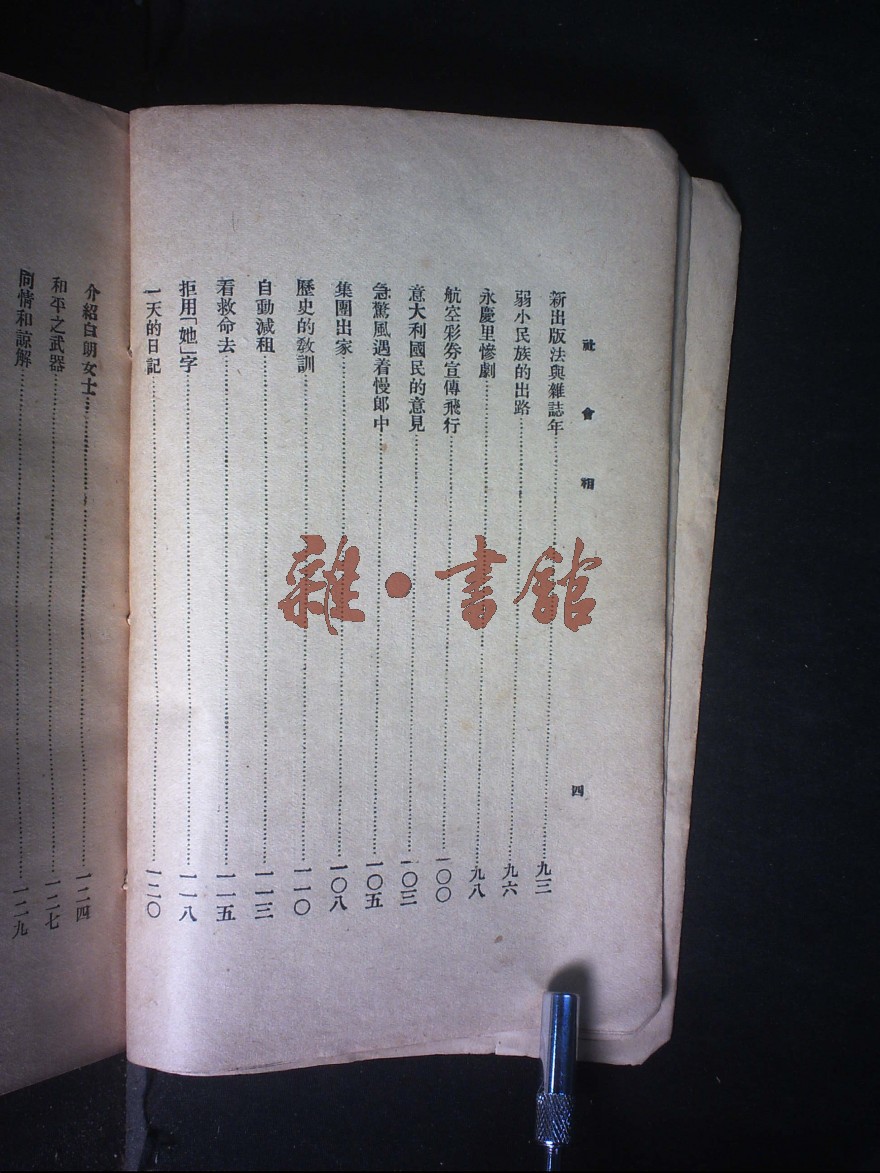 社會相
四
新出版法與雜誌年……九三
弱小民族的出路……九六
永慶里慘劇……九八
航空彩券宣傳飛行……一〇〇
意大利國民的意見……一〇三
急驚風遇着慢郎中……一〇五
集團出家……一〇八
歷史的教訓……一一〇
自動減租……一一三
看救命去……一一五
拒用「她」字……一一八
一天的日記……一二〇
介紹白朗女士……一二四
和平之武器……一二七
同情和諒解……一二九
雜·書館